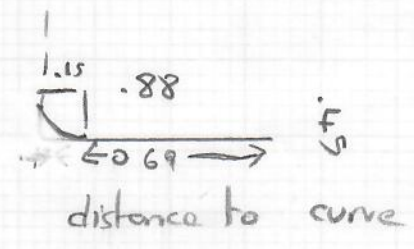 .15
.88
0.69
distance to curve